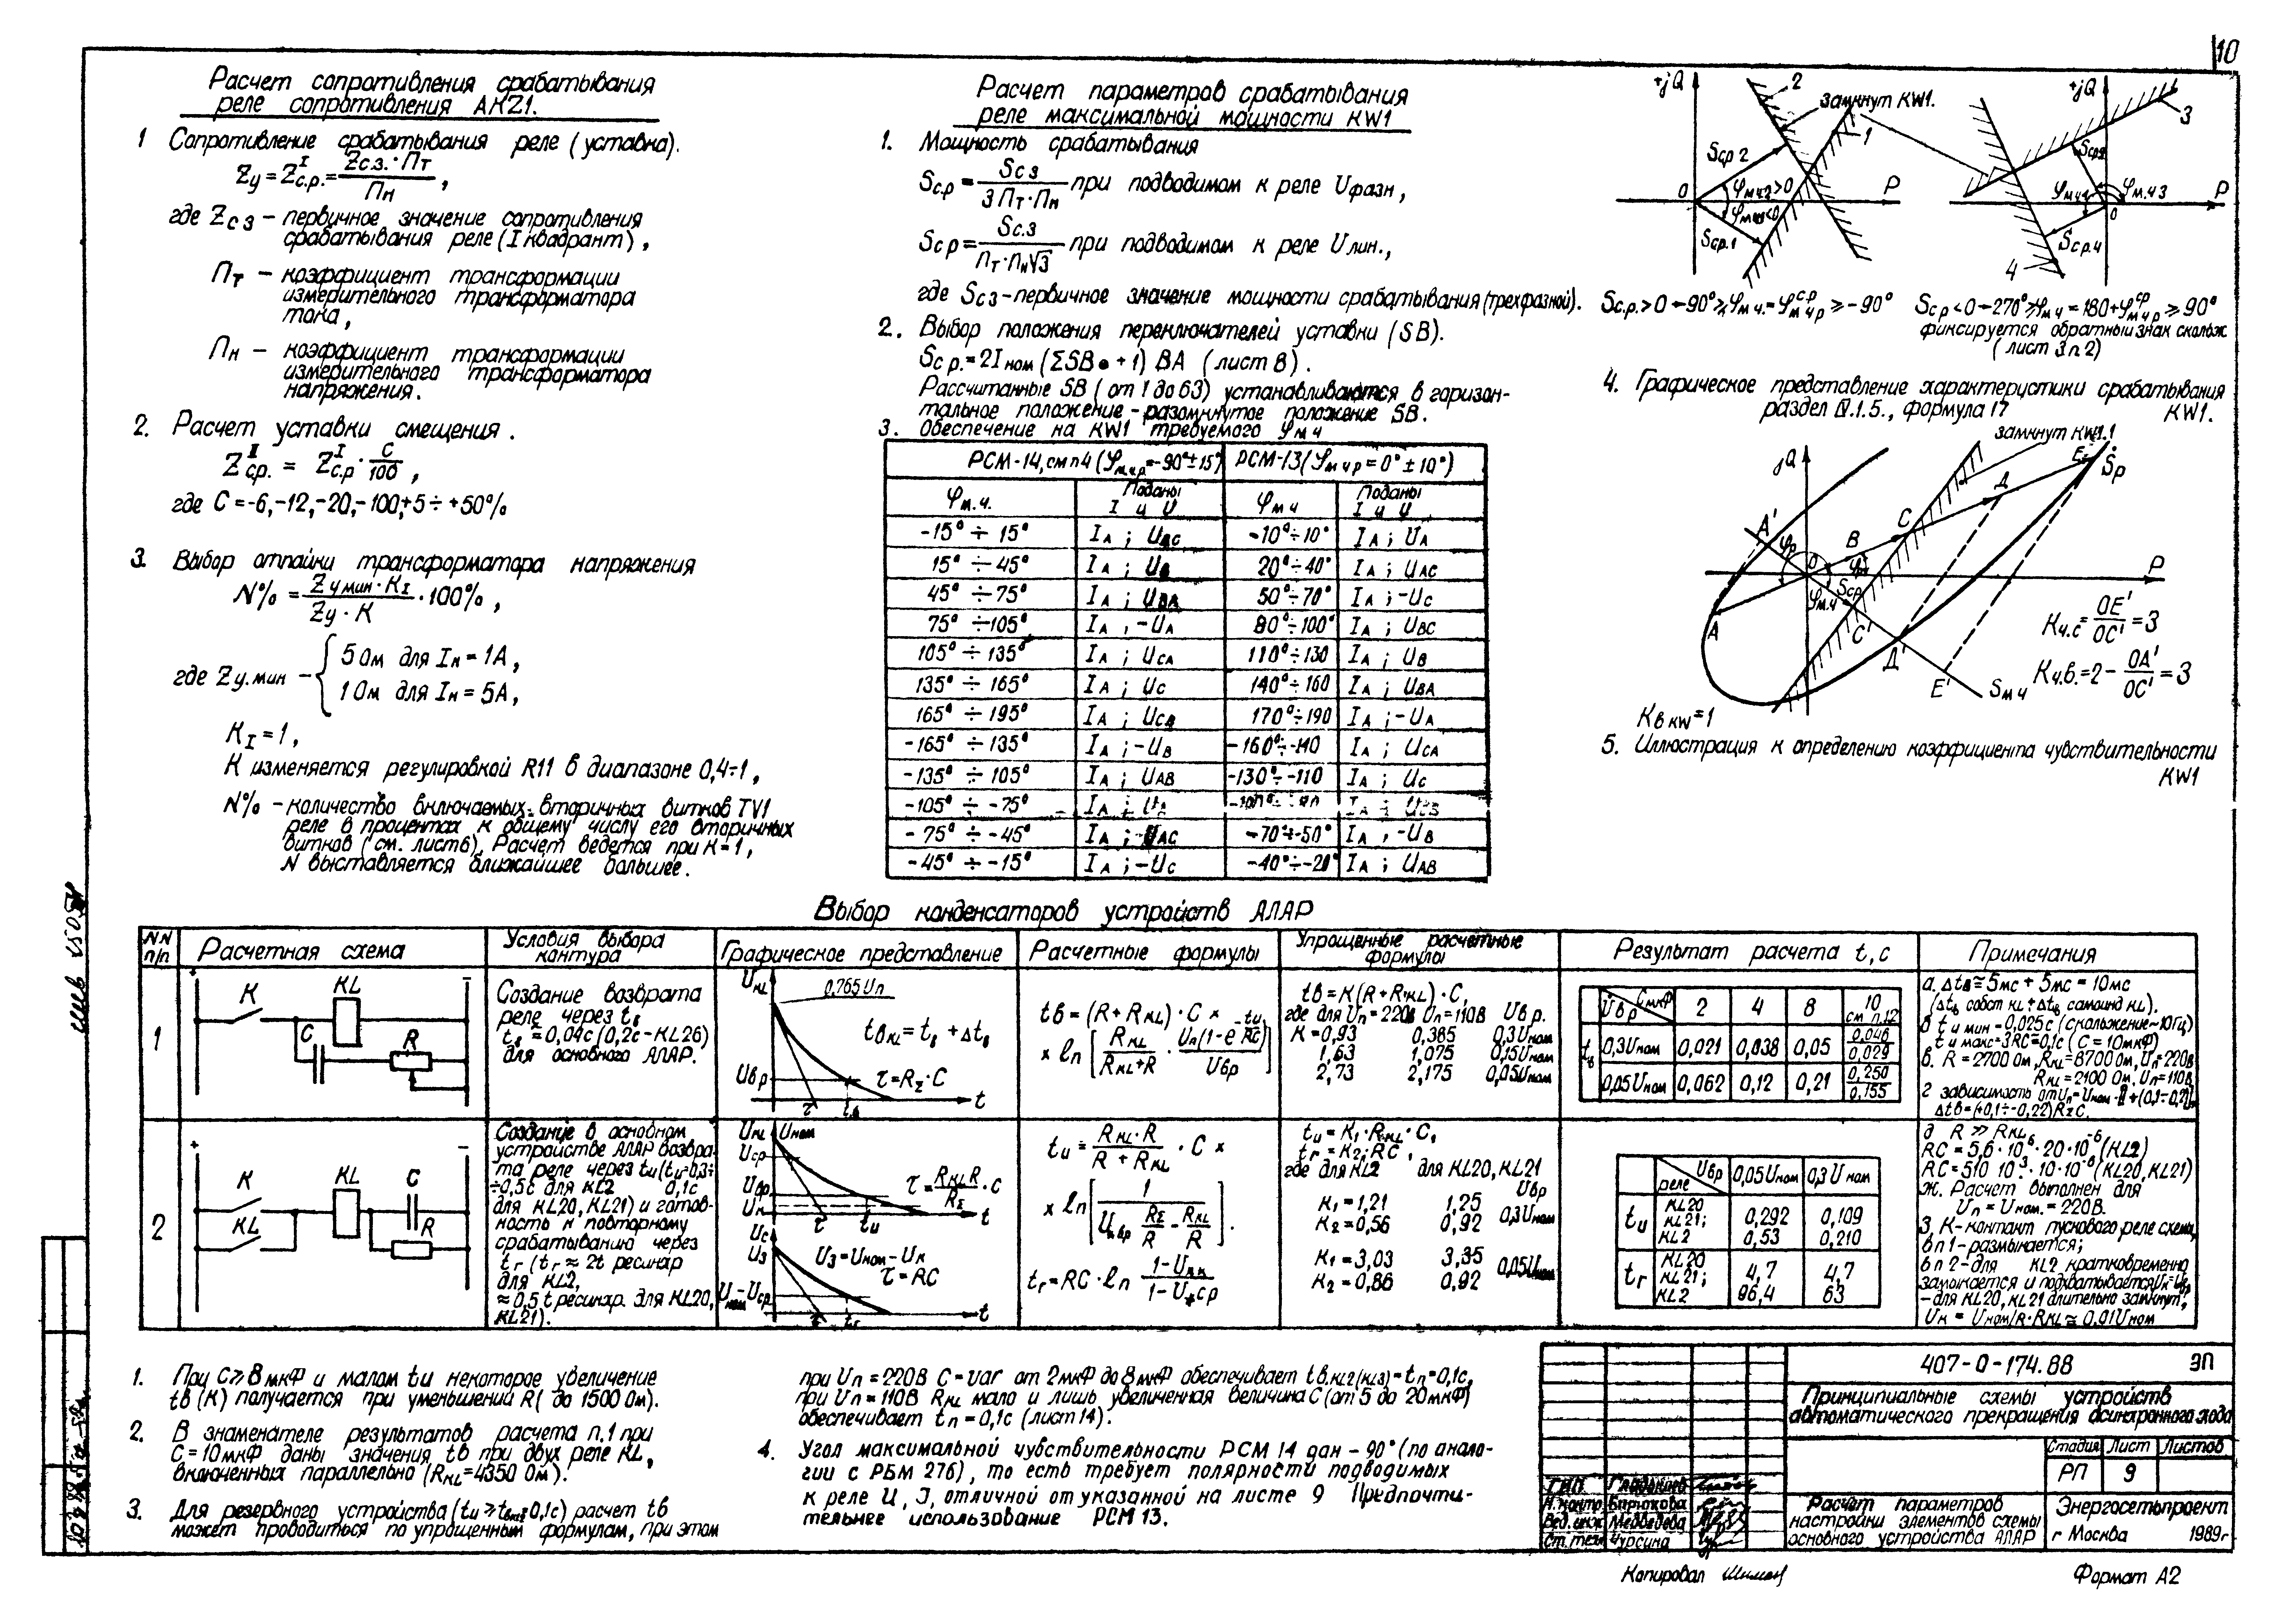 10
Расчет сопротивления срабатывания
реле сопротивления AKZ1.
1 Сопротивление срабатывания реле (уставка).
Zу = Z с.р. I = Zс.з. · Пт / Пн ,
где Zс з – первичное значение сопротивления
срабатывания реле (I квадрант),
Пт – коэффициент трансформации
измерительного трансформатора
тока,
Пн – коэффициент трансформации
измерительного трансформатора
напряжения.
2. Расчет уставки смещения.
Z ср. II = Z с.р I · С / 100 ,
где С = -6, -12, -20, -100, +5 ÷ +50%
3. Выбор отпайки трансформатора напряжения
N% = Zу мин · КI / Zу · К · 100% ,
где Zу.мин – { 5 Ом для Iн = 1А,
1 Ом для Iн = 5А,
КI = 1,
К изменяется регулировкой R11 в диапазоне 0,4÷1,
N% – количество включаемых вторичных витков TV1
реле в процентах к общему числу его вторичных
витков (см. лист 6). Расчет ведется при К=1,
N выставляется ближайшее большее.
Расчет параметров срабатывания
реле максимальной мощности KW1
1. Мощность срабатывания
Sс.р = Sс з / 3 Пт · Пн при подводимом к реле Uфазн,
Sс р = Sс.з / Пт · Пн√3 при подводимом к реле Uлин.,
где Sс з – первичное значение мощности срабатывания (трехфазной).
2. Выбор положения переключателей уставки (SB).
Sс р. = 2Iном (ΣSB + 1) ВА (лист 8).
Рассчитанные SB (от 1 до 63) устанавливаются в горизон-
тальное положение – разомкнутое положение SB.
3. Обеспечение на KW1 требуемого φм ч
РСМ-14, см п 4 (φм ч р = -90° ± 15°) РСМ-13 (φм ч р = 0° ± 10°)
φм.ч. Поданы I и U φм ч Поданы I и U
-15° ÷ 15° IА ; -10° ÷ 10° IА ; UА
15° ÷ 45° IА ; 20° ÷ 40° IА ; UАС
45° ÷ 75° IА ; UВА 50° ÷ 70° IА ; -UС
75° ÷ 105° IА , -UА 80° ÷ 100° IА ; UВС
105° ÷ 135° IА ; UСА 110° ÷ 130 IА ; UВ
135° ÷ 165° IА ; UС 140° ÷ 160 IА ; UВА
165° ÷ 195° IА ; UСВ 170° ÷ 190 IА ; -UА
-165° ÷ 135° IА ; -UВ -160° ÷ -140 IА ; UСА
-135° ÷ 105° IА ; UАВ -130° ÷ -110 IА ; UС
-105° ÷ -75° IА ; IА ;
-75° ÷ -45° IА ; UАС -70° ÷ -50° IА , -UВ
-45° ÷ -15° IА ; -UС -40° ÷ -20° IА ; UАВ
+jQ 2 замкнут KW1. 1 Sср 2 0 φм.ч.2>0 P Sср.1
+jQ 3 φм.ч 3 P 0 Sср.4 4
Sс.р. > 0 – 90° ≥ φм ч. = φ м ч р с р ≥ -90°
Sс р < 0 – 270° ≥ φм ч = 180 + φ м ч р ср ≥ 90°
фиксируется обратный знак скольж
(лист 3 п 2)
4. Графическое представление характеристики срабатывания
раздел IV.1.5., формула 17 KW1.
замкнут KW1.1
jQ E Sр
Д
С
А' В
φр О P
Sср
φм.ч
А С'
Д'
E' Sм ч
Кч.с = ОE' / ОС' = 3
Кч.в. = 2 – ОА' / ОС' = 3
Кв KW = 1
5. Иллюстрация к определению коэффициента чувствительности
KW1
Выбор конденсаторов устройств АЛАР
NN п/п Расчетная схема Условия выбора контура Графическое представление Расчетные формулы Упрощенные расчетные формулы Результат расчета t, с Примечания
1
+ –
К KL
С R
Создание возврата
реле через tв
tв ≈ 0,04с (0,2с – KL26)
для основного АЛАР.
UKL 0,765 Uп
tв KL = tв + Δtв
Uв р τ = RΣ · С
τ tв t
tв = (R + RKL) · С ×
× ln [ RKL / RKL+R · Uп(1-e -tи/RC) / Uв р ]
tв = К(R + RKL) · С,
где для Uп = 220В Uп = 110В Uв р.
К = 0,93 0,385 0,3Uном
1,63 1,075 0,15Uном
2,73 2,175 0,05Uном
Uв р С мкФ 2 4 8 10 см п.12
tв 0,3Uном 0,021 0,038 0,05 0,046 / 0,029
0,05 Uном 0,062 0,12 0,21 0,250 / 0,155
а. Δtв ≅ 5мс + 5мс = 10мс
(Δtв собст KL + Δtв самоинд KL).
б tи мин = 0,025с (скольжение ~10Гц)
tи макс = 3RC = 0,1с (С = 10мкФ)
в. R = 2700 Ом, RKL = 8700 Ом, Uп = 220В
RKL = 2100 Ом. Uп = 110В
г зависимость от Uп = Uном
Δtв = (+0,1 ÷ -0,22)RΣC.
2
+ –
К KL С
KL R
Создание в основном
устройстве АЛАР возвра-
та реле через tи (tи = 0,3÷
÷0,5с для KL2 0,1с
для KL20, KL21) и готов-
ность к повторному
срабатыванию через
tг (tг ≈ 2t ресинхр
для KL2,
≈ 0,5 t ресинхр. для KL20,
KL21).
UKL Uном
Uср
Uвр τ = RKL R / RΣ · С
Uк
τ tи t
Uс
Uз Uз = Uном – Uк
τ = RC
Uном – Uср
τ tг t
tи = RKL · R / R + RKL · С ×
× ln [ 1 / Uвр RΣ / R – RKL / R ] .
tг = RC · ln
tи = К1 · RKL · С,
tг = К2 · RC ,
где для KL2 для KL20, KL21
Uвр
К1 = 1,21 1,25
К2 = 0,56 0,92 0,3Uном
К1 = 3,03 3,35
К2 = 0,86 0,92 0,05Uном
реле Uвр 0,05Uном 0,3 Uном
tи KL20 KL21; 0,292 0,109
KL2 0,53 0,210
tг KL20 KL21; 4,7 4,7
KL2 96,4 63
д R ≫ RKL
RC = 5,6 · 10⁶ · 20 · 10⁻⁶ (KL2)
RC = 510 10³ · 10 · 10⁻⁶ (KL20, KL21)
ж. Расчет выполнен для
Uп = Uном. = 220В.
З, К – контакт пускового реле схемы,
в п 1 – размыкается;
в п 2 – для KL2 кратковременно
замыкается и подхватывается
– для KL20, KL21 длительно замкнут,
Uк = Uном/R · RKL ≅ 0,01Uном
1. При С ⩾ 8 мкФ и малом tи некоторое увеличение
tв (К) получается при уменьшении R (до 1500 Ом).
2. В знаменателе результатов расчета п.1 при
С = 10мкФ даны значения tв при двух реле KL,
включенных параллельно (RKL = 4350 Ом).
3. Для резервного устройства (tи ⩾ 0,1с) расчет tв
может проводиться по упрощенным формулам, при этом
при Uп = 220В С = var от 2мкФ до 8мкФ обеспечивает tв.KL2 (KL3) = tп = 0,1с,
при Uп = 110В RKL мало и лишь увеличенная величина С (от 5 до 20мкФ)
обеспечивает tп = 0,1с (лист 14).
4. Угол максимальной чувствительности РСМ 14 дан – 90° (по анало-
гии с РБМ 276), то есть требует полярности подводимых
к реле U, I, отличной от указанной на листе 9 Предпочти-
тельнее использование РСМ 13.
407-0-174.88 ЭП
Принципиальные схемы устройств
автоматического прекращения асинхронного хода
Стадия Лист Листов
РП 9
ГИП
Н. контр. Бирюкова
Вед. инж. Медведева
Ст. техн Чурсина
Расчет параметров
настройки элементов схемы
основного устройства АЛАР
Энергосетьпроект
г Москва 1989г.
Копировал
Формат А2